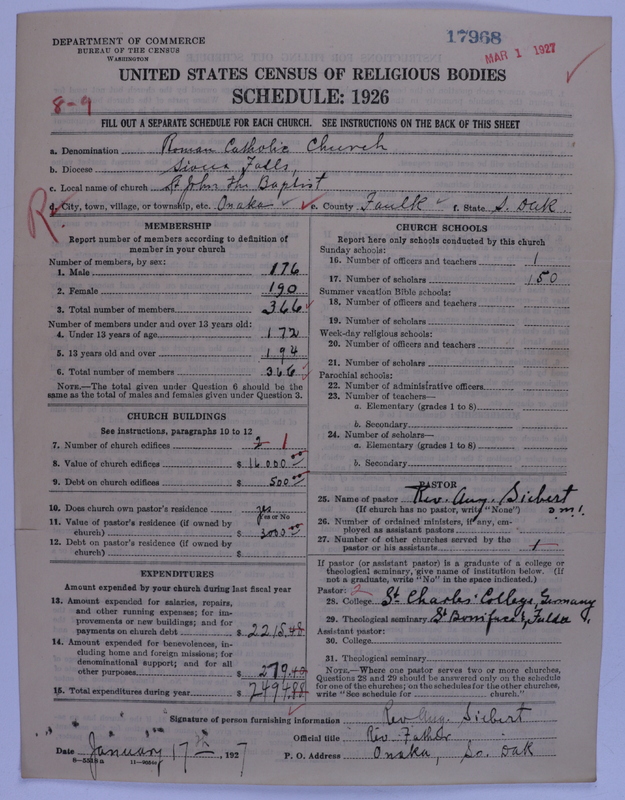 17968
MAR 1 1927
DEPARTMENT OF COMMERCE
BUREAU OF THE CENSUS
WASHINGTON
UNITED STATES CENSUS OF RELIGIOUS BODIES
SCHEDULE: 1926
8-9
FILL OUT A SEPARATE SCHEDULE FOR EACH CHURCH. SEE INSTRUCTIONS ON THE BACK OF THIS SHEET
a. Denomination Roman Catholic Church
b. Diocese Sioux Falls
c. Local name of church St John The Baptist
R.
d. City, town, village, or township, etc. Onaka e. County Faulk f. State S. Dak.
MEMBERSHIP
Report number of members according to definition of
member in your church
Number of members, by sex:
1. Male 176
2. Female 190
3. Total number of members 366
Number of members under and over 13 years old:
4. Under 13 years of age 172
5. 13 years old and over 194
6. Total number of members 366
NOTE.—The total given under Question 6 should be the
same as the total of males and females given under Question 3.
CHURCH BUILDINGS
See instructions, paragraphs 10 to 12
7. Number of church edifices 2 1
8. Value of church edifices $ 16.000.00
9. Debt on church edifices $ 500.00
10. Does church own pastor's residence yes
Yes or No
11. Value of pastor's residence (if owned by
church) $ 3000.00
12. Debt on pastor's residence (if owned by
church) $
EXPENDITURES
Amount expended by your church during last fiscal year
13. Amount expended for salaries, repairs,
and other running expenses; for im-
provements or new buildings; and for
payments on church debt $ 2215.48
14. Amount expended for benevolences, in-
cluding home and foreign missions; for
denominational support; and for all
other purposes $ 279.40
15. Total expenditures during year $ 2494.88
CHURCH SCHOOLS
Report here only schools conducted by this church
Sunday schools:
16. Number of officers and teachers 1
17. Number of scholars 150
Summer vacation Bible schools:
18. Number of officers and teachers
19. Number of scholars
Week-day religious schools:
20. Number of officers and teachers
21. Number of scholars
Parochial schools:
22. Number of administrative officers
23. Number of teachers—
a. Elementary (grades 1 to 8)
b. Secondary
24. Number of scholars—
a. Elementary (grades 1 to 8)
b. Secondary
PASTOR
25. Name of pastor Rev. Aug. Siebert
(If church has no pastor, write "None") o m!
26. Number of ordained ministers, if any, em-
ployed as assistant pastors
27. Number of other churches served by the
pastor or his assistants 1
If pastor (or assistant pastor) is a graduate of a college or
theological seminary, give name of institution below. (If
not a graduate, write "No" in the space indicated.)
Pastor: 2
28. College St Charles' College, Germany
29. Theological seminary St Boniface, Fulda
Assistant pastor:
30. College
31. Theological seminary
NOTE.—Where one pastor serves two or more churches,
Questions 28 and 29 should be answered only on the schedule
for one of the churches; on the schedules for the other churches,
write "See schedule for church."
Signature of person furnishing information Rev Aug. Siebert
Official title Rev. Father
Date January 17th, 1927 P. O. Address Onaka, So. Dak
8-5518a 11-9034a